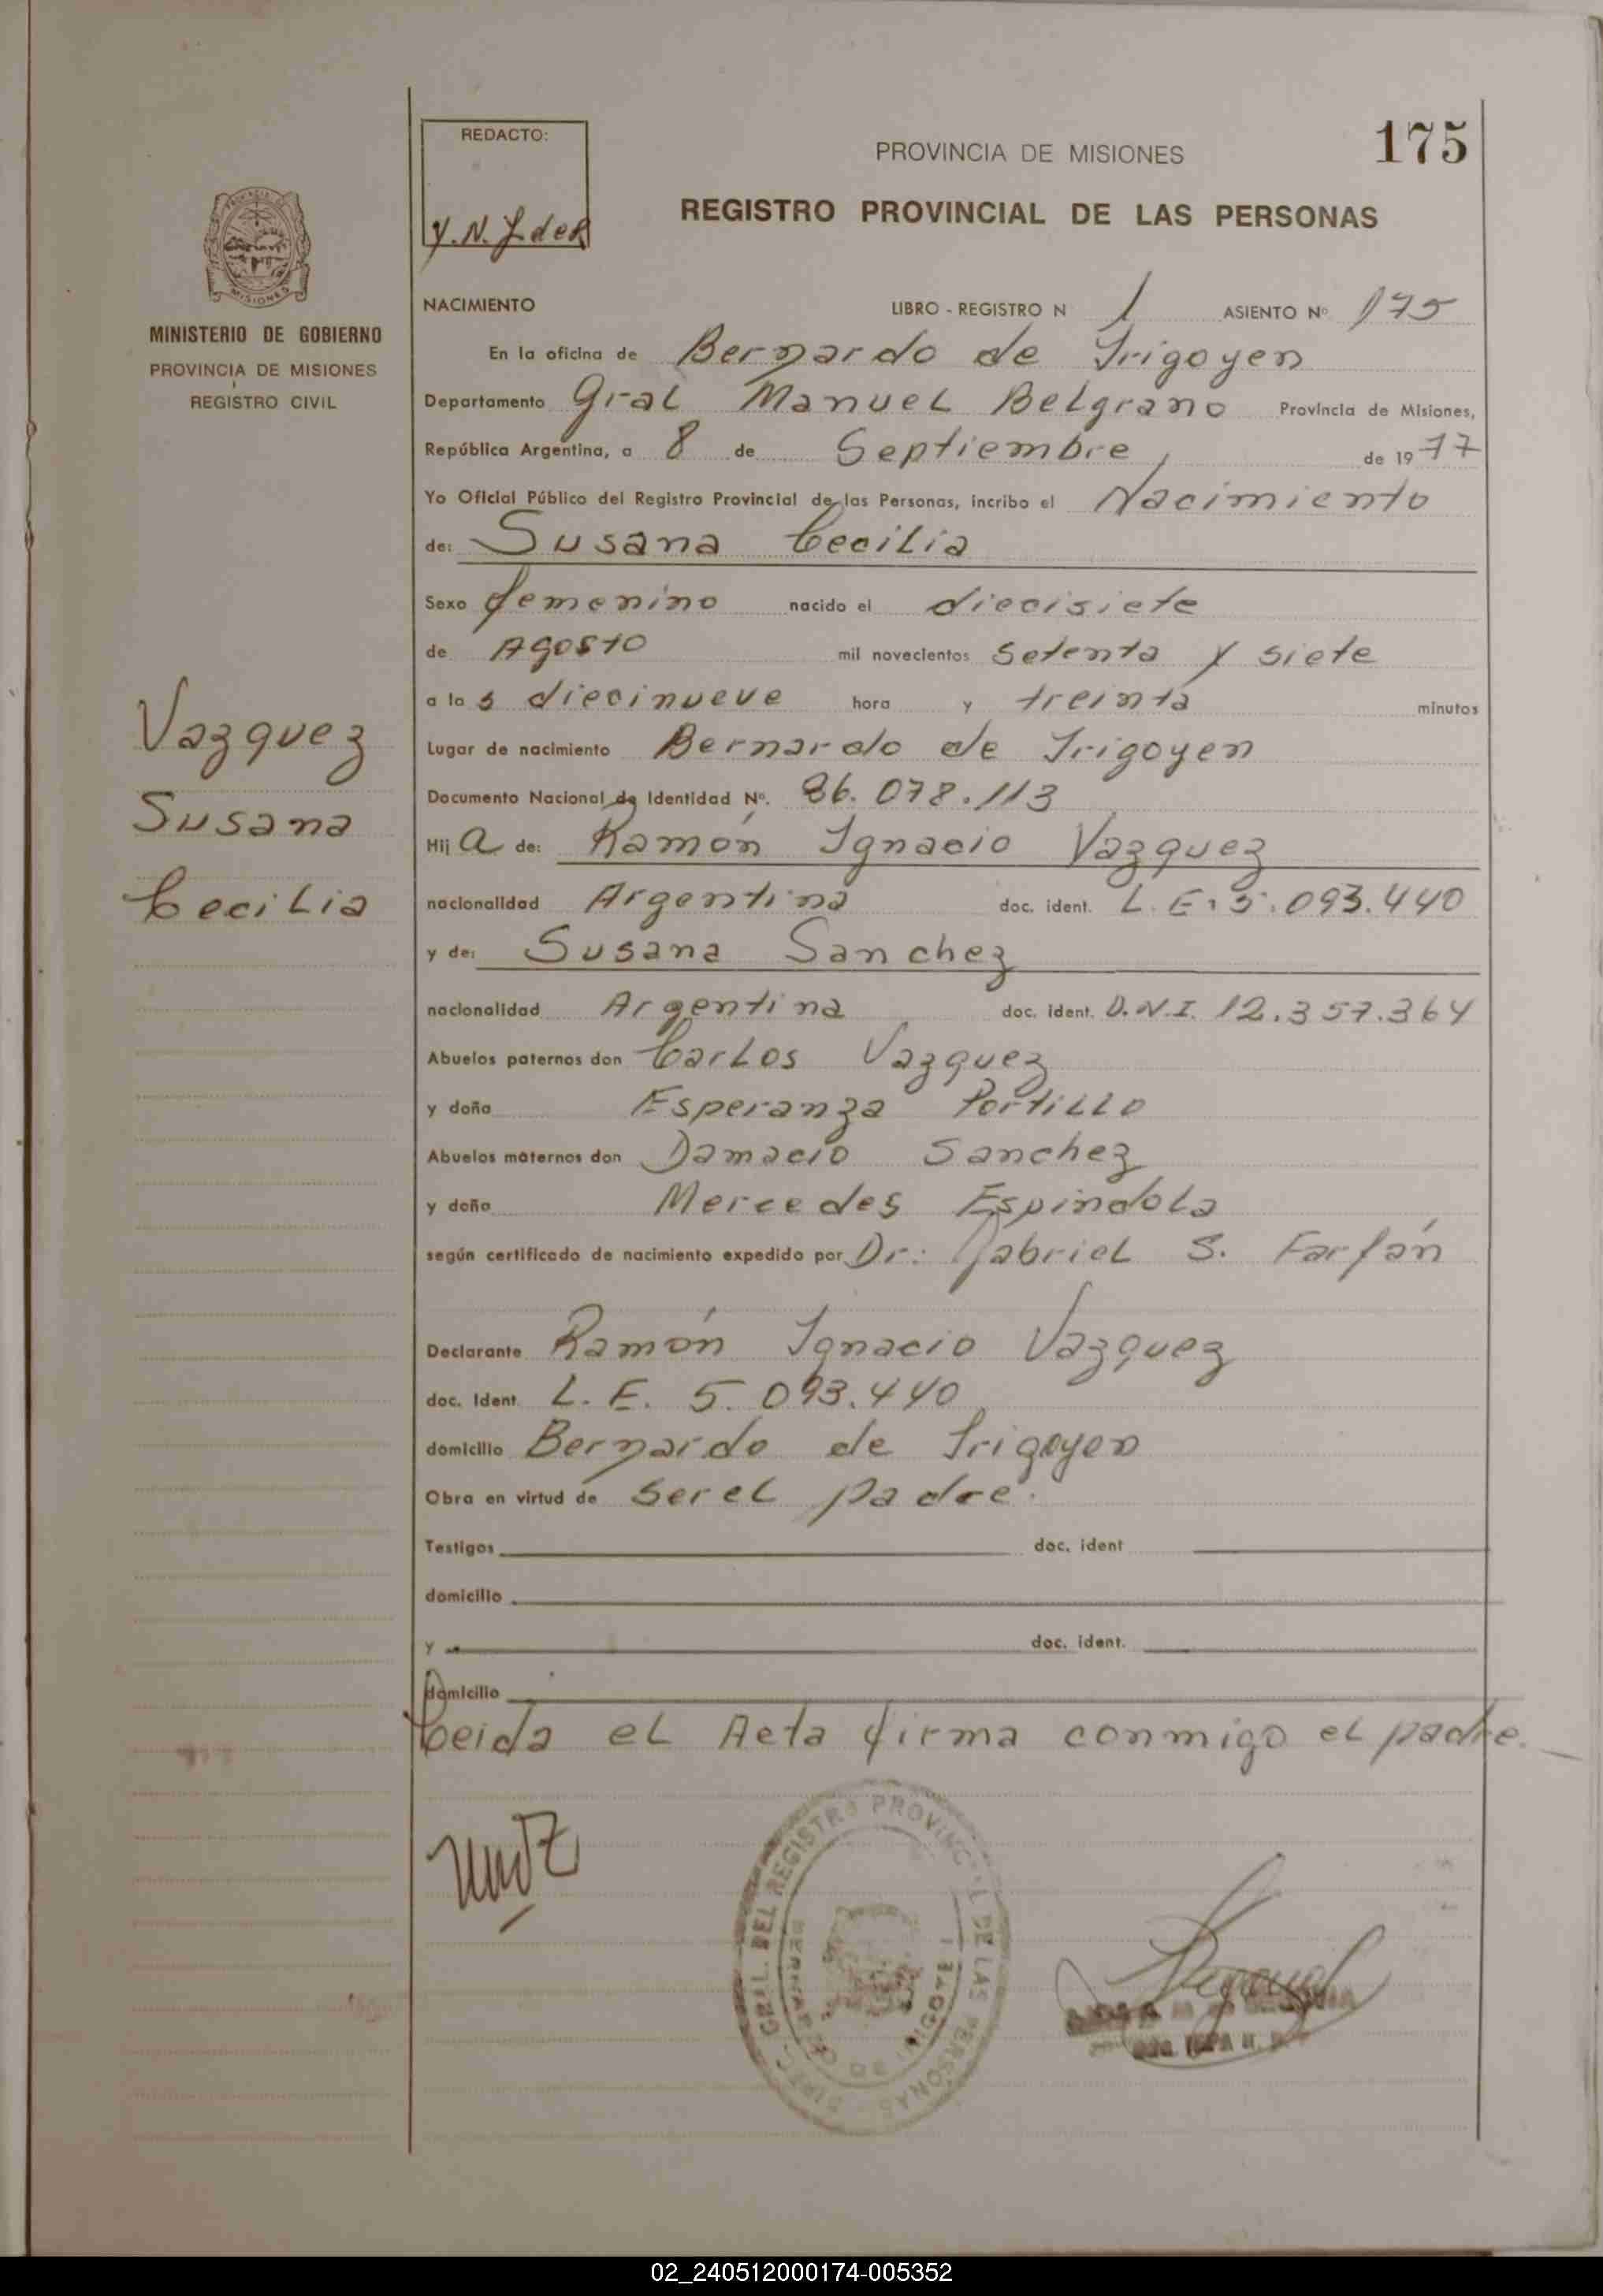 REDACTO:
Y. N. J de R
PROVINCIA DE MISIONES
175
REGISTRO PROVINCIAL DE LAS PERSONAS
MISIONES
MINISTERIO DE GOBIERNO
PROVINCIA DE MISIONES
REGISTRO CIVIL
NACIMIENTO LIBRO - REGISTRO N 1 ASIENTO Nº 175
En la oficina de Bernardo de Irigoyen
Departamento Gral Manuel Belgrano Provincia de Misiones,
República Argentina, a 8 de Septiembre, de 1977
Yo Oficial Público del Registro Provincial de las Personas, incribo el Nacimiento
de: Susana Cecilia
Sexo femenino nacido el diecisiete
de Agosto mil novecientos Setenta y siete
a las diecinueve hora y treinta minutos
Vazquez
Susana
Cecilia
Lugar de nacimiento Bernardo de Irigoyen
Documento Nacional de Identidad Nº. 26.078.113
Hij a de: Ramón Ignacio Vazquez
nacionalidad Argentina doc. ident. L. E. 5.093.440
y de: Susana Sanchez
nacionalidad Argentina doc. ident. D.N.I. 12.357.364
Abuelos paternos don Carlos Vazquez
y doña Esperanza Portillo
Abuelos maternos don Damacio Sanchez
y doña Mercedes Espindola
según certificado de nacimiento expedido por Dr: Gabriel S. Farfán
Declarante Ramón Ignacio Vazquez
doc. Ident. L. E. 5.093.440
domicilio Bernardo de Irigoyen
Obra en virtud de ser el padre.
Testigos doc. ident
domicilio
y doc. ident.
domicilio
Leida el Acta firma conmigo el padre.
DIREC. GRAL. DEL REGISTRO PROVINCIAL DE LAS PERSONAS
BERNARDO DE IRIGOYEN
02_240512000174-005352